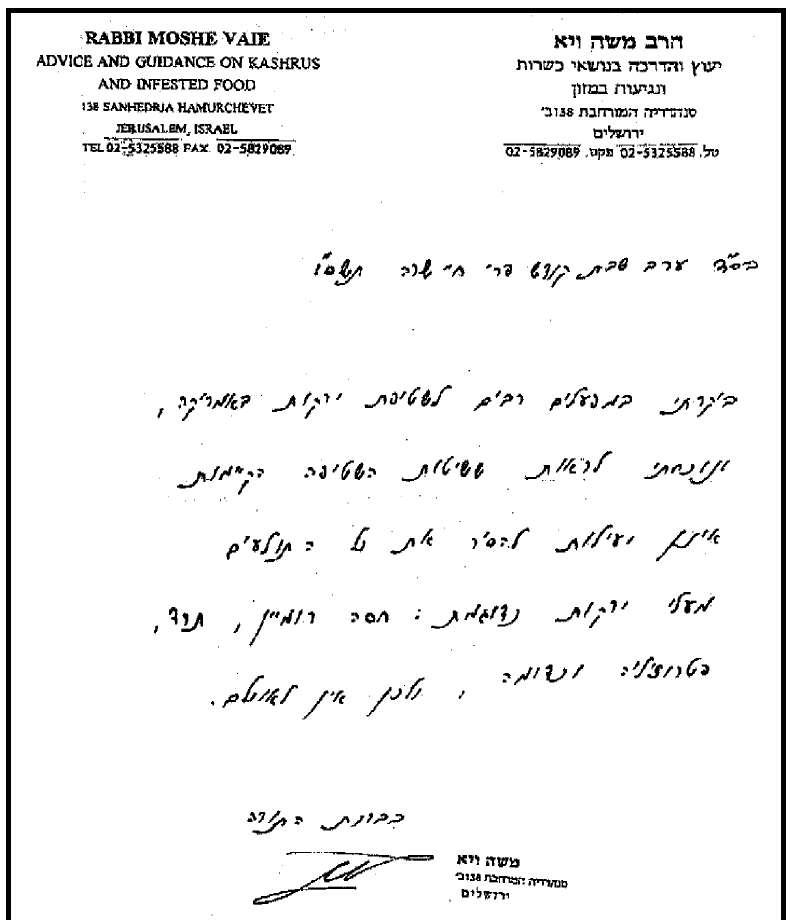 RABBI MOSHE VAIE
ADVICE AND GUIDANCE ON KASHRUS
AND INFESTED FOOD
138 SANHEDRIA HAMURCHEVET
JERUSALEM, ISRAEL
TEL 02-5325588 FAX. 02-5829089
הרב משה ויא
יעוץ והדרכה בנושאי כשרות
ונגיעות במזון
סנהדריה המורחבת 138ב'
ירושלים
טל. 02-5325588 פקס. 02-5829089
בס"ד ערב שבת קודש פר' חיי שרה תשס"ו
ביקרתי במפעלים רבים לשטיפת ירקות באמריקה,
ונוכחתי לראות ששיטות השטיפה הקיימות
אינן יעילות להסיר את כל התולעים
מעלי ירקות כדוגמת: חסה רומיין, תרד,
פטרוזיליה וכדומה, ולכן אין לאוכלם.
בברכת התורה
משה ויא
סנהדריה המורחבת 138ב'
ירושלים